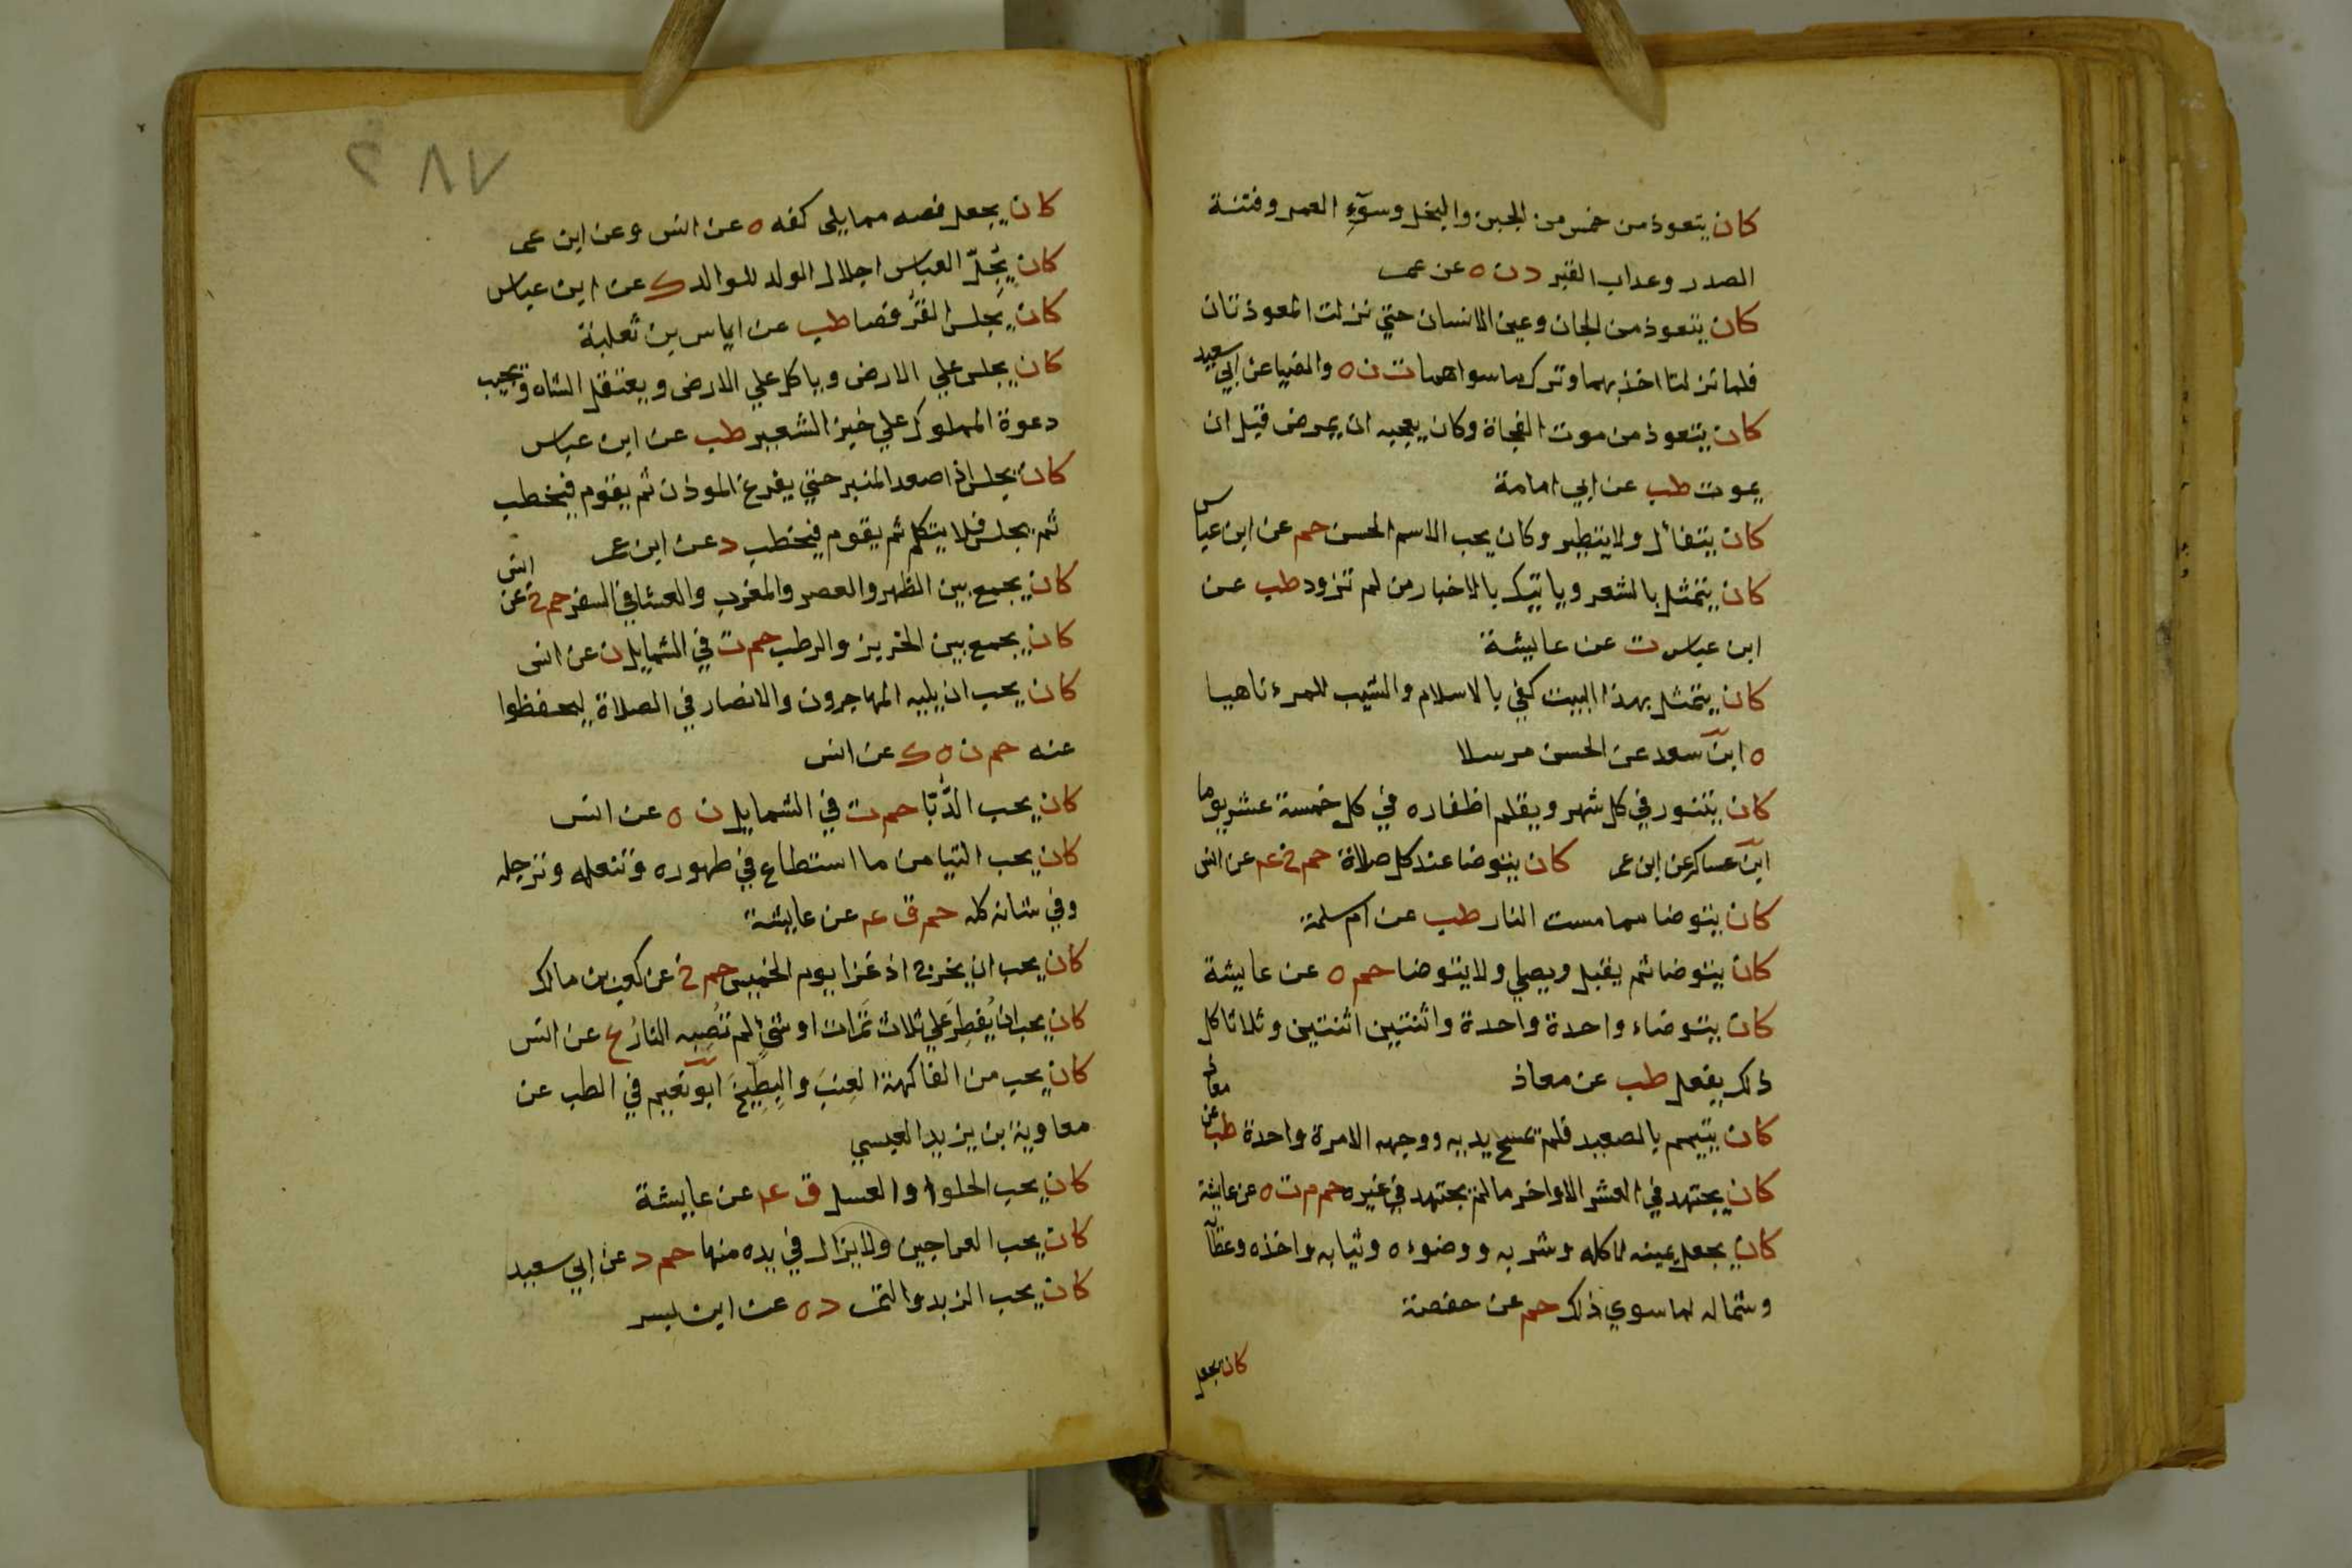 كان يتعوذ من خمس من الجبن والبخل وسوٓءِ العمر وفتنة
الصدر وعذاب القبر د ن ه عن عمر
كان يتعوذ من الجان وعين الانسان حتي نزلت المعوذتان
فلما نزلتا اخذ بهما وترك ما سواهما ت ن ه والضيا عن ابي سعيد
كان يتعوذ من موت الفجاة وكان يعجبه ان يمرض قبل ان
يموت طب عن ابي امامة
كان يتفائل ولا يتطير وكان يحب الاسم الحسن حم عن ابن عباس
كان يتمثل بالشعر وياتيك بالاخبار من لم تزود طب عن
ابن عباس ت عن عايشة
كان يتمثل بهذا البيت كفي بالاسلام والشيب للمرء ناهيا
ه ابن سعد عن الحسن مرسلا
كان يتنور في كل شهر ويقلم اظفاره في كل خمسة عشر يوما
ابن عساكر عن ابن عمر كان يتوضا عند كل صلاة حم خ عه عن انس
كان يتوضا مما مست النار طب عن ام سلمة
كان يتوضا ثم يقبل ويصلي ولا يتوضا حم ه عن عايشة
كان يتوضاء واحدة واحدة واثنتين اثنتين وثلاثا كل
ذلك يفعل طب عن معاذ
كان يتيمم بالصعيد فلم يمسح يديه ووجهه الا مرة واحدة طب عن معاذ
كان يجتهد في العشر الاواخر ما لم يجتهد في غيره حم م ت ه عن عايشة
كان يجعل يمينه لاكله وشربه ووضوءه وثيابه واخذه وعطآ
وشماله لما سوي ذلك حم عن حفصة
كان يجعل
٢٨٧
كان يجعل فصه مما يلي كفه ه عن انس وعن ابن عمر
كان يُجِلّ العباس اجلال الولد للوالد ك عن ابن عباس
كان يجلس القُرفصا طب عن اياس بن ثعلبة
كان يجلس علي الارض وياكل علي الارض ويعتقل الشاه ويجيب
دعوة المملوك علي خبز الشعير طب عن ابن عباس
كان يجلس اذا صعد المنبر حتي يفرغ الموذن ثم يقوم فيخطب
ثم يجلس فلا يتكلم ثم يقوم فيخطب د عن ابن عمر
كان يجمع بين الظهر والعصر والمغرب والعشا في السفر حم خ عن انس
كان يجمع بين الخربز والرطب حم ت في الشمايل ن عن انس
كان يحب ان يليه المهاجرون والانصار في الصلاة ليحفظوا
عنه حم ن ه ك عن انس
كان يحب الدُّبّا حم ت في الشمايل ن ه عن انس
كان يحب التيامن ما استطاع في طهوره وتنعله وترجله
وفي شانه كله حم ق عه عن عايشة
كان يحب ان يخرج اذا غزا يوم الخميس حم خ عن كعب بن مالك
كان يحب ان يُفطِرَ علي ثلاث تَمَرات او شيءٍ لم تُصِبه النارُ ع عن انس
كان يحب من الفاكهة العِنبَ والبِطِّيخَ ابو نعيم في الطب عن
معاوية ابن يزيد العبسي
كان يحب الحلوا والعسل ق عه عن عايشة
كان يحب العراجين ولا يزال في يده منها حم د عن ابي سعيد
كان يحب الزبد والتمر د ه عن ابن بسر